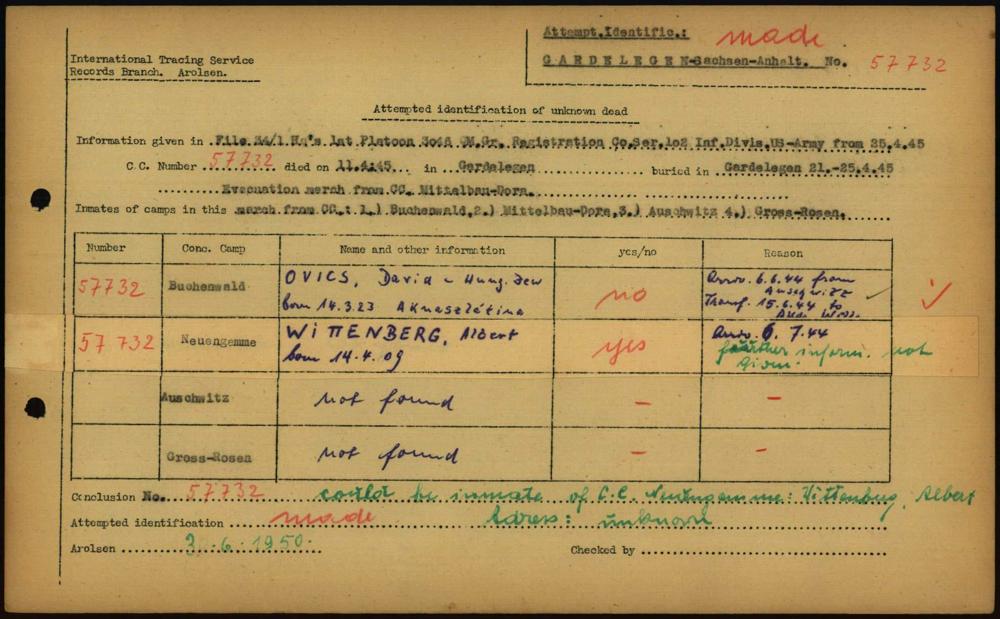 Attempt.Identific.: made
International Tracing Service
Records Branch. Arolsen.
GARDELEGEN-Sachsen-Anhalt. No. 57732
Attempted identification of unknown dead
Information given in File 34/1 Hq's 1st Platoon 3046 QM.Gr. Registration Co.Ser.102 Inf.Divis.US-Army from 25.4.45
C.C. Number 57732 died on 11.4:45. in Gardelegen buried in Gardelegen 21.-25.4.45
Evacuation march from CC. Mittelbau-Dora.
Inmates of camps in this march from CC.: 1.) Buchenwald,2.) Mittelbau-Dora,3.) Auschwitz 4.) Gross-Rosen.
Number Conc. Camp Name and other information yes/no Reason
57732 Buchenwald OVICS, David - Hung. Jew born 14.3.23 Aknaszlátina no Arriv. 6.6.44 from Auschwitz Transf. 15.6.44 to ✓ ✓
57732 Neuengamme WITTENBERG, Albert born 14.4.09 yes Arriv. 6. 7.44 further inform. not given.
Auschwitz not found – –
Gross-Rosen not found – –
Conclusion No. 57732 could be inmate of C.C. Neuengamme: Wittenberg, Albert
Attempted identification made Adress: unknown
Arolsen 30.6.1950. Checked by